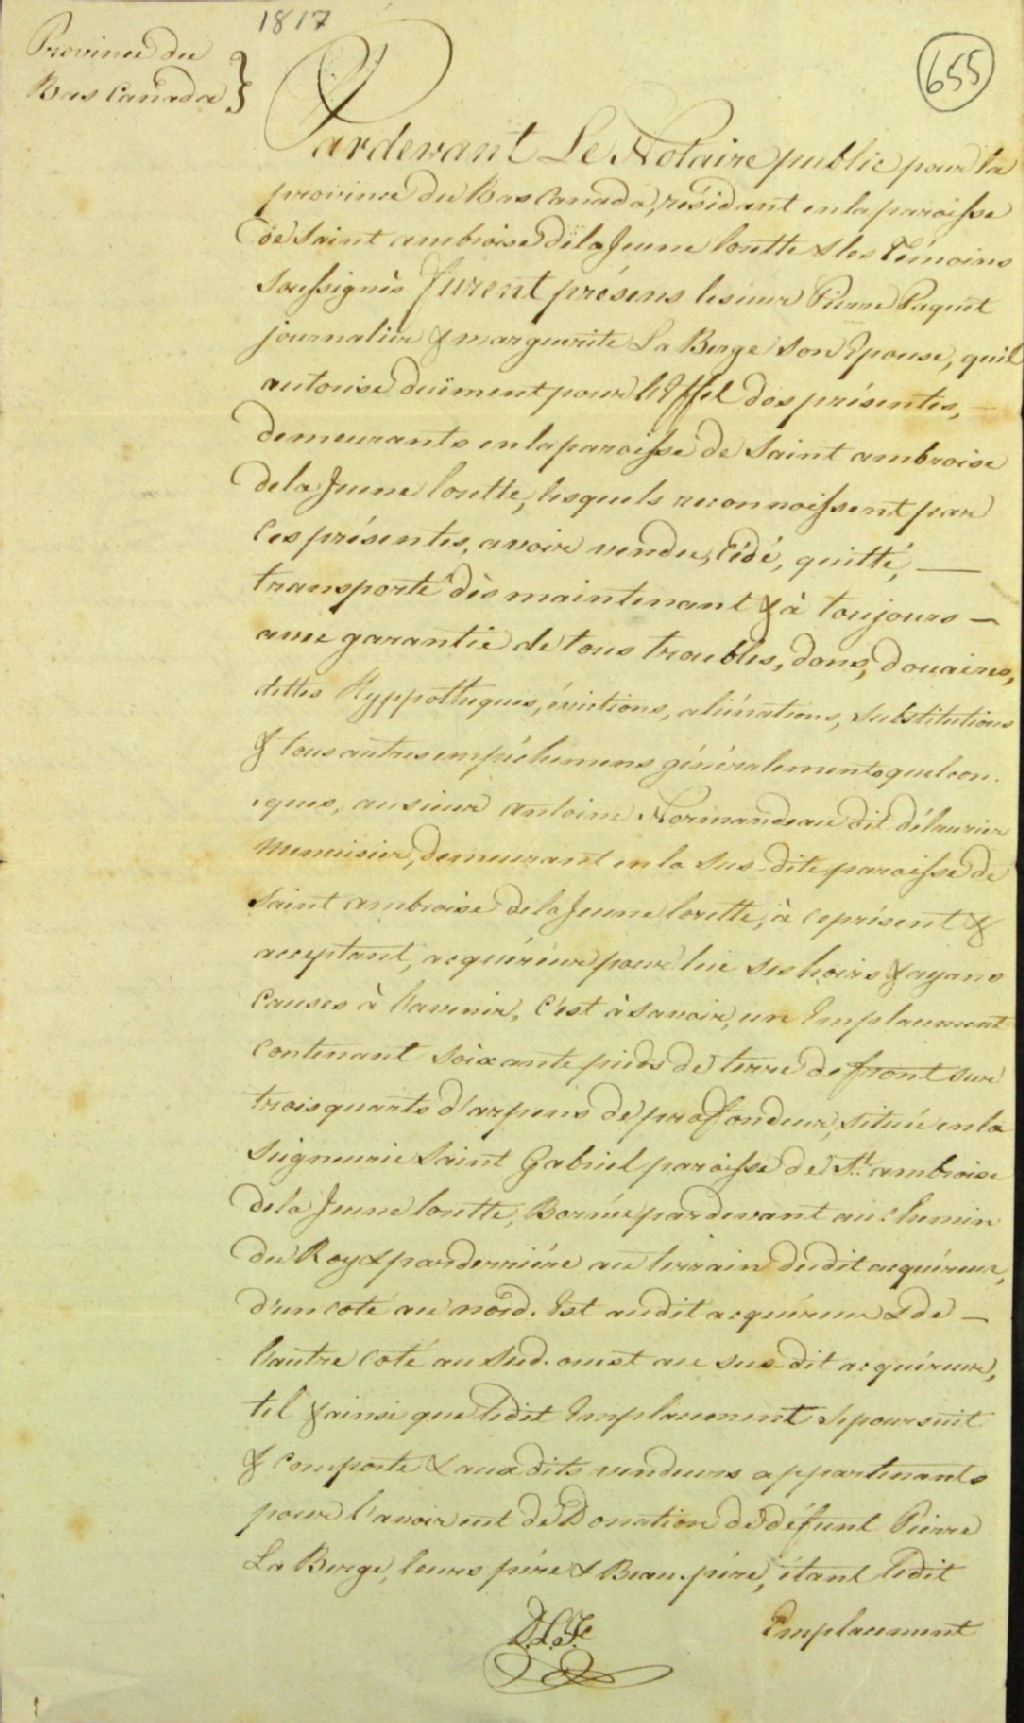 1817
655
Province du
Bas Canada }
Pardevant Le Notaire public pour la
province du Bas Canada, résidant en la paroisse
de Saint ambroise de la Jeune lorette & les Témoins
soussignés furent présens le sieur Pierre Paquet
journalier & marguerite La Berge son Epouse, qu'il
autorise duëment pour l'Effet des présentes, —
demeurants en la paroisse de Saint ambroise
de la Jeune lorette, lesquels reconnoissent par
Ces présentes, avoir vendu, Cédé, quitté, —
transporté dès maintenant & à toujours —
avec garantie de tous troubles, dons, douaires,
dettes Hyppotheques, évictions, aliénations, substitutions
& tous autres empêchemens généralements quelcon-
-ques, au sieur antoine Normandeau dit délaurier
Menuisier, demeurant en la sus-dite paroisse de
Saint ambroise de la Jeune lorette, à ce présent &
acceptant, acquéreur pour lui ses hoirs & ayans
Causes à l'avenir, C'est à savoir, un Emplacement
Contenant soixante pieds de terre de front sur
trois quarts d'arpens de profondeur, située en la
Seigneurie Saint Gabriel paroisse de St. ambroise
de la Jeune lorette, Bornée par devant au Chemin
du Roy & par derriére au terrain dudit acquéreur,
d'un coté au nord-Est audit acquéreur & de —
l'autre Coté au sud-ouest au susdit acquéreur,
tel & ainsi que ledit Emplacement se poursuit
& Comporte & auxdits vendeurs appartenants
pour l'avoir eut de Donation de défunt Pierre
La Berge, leurs pére & Beau-pére, étant ledit
Emplacement